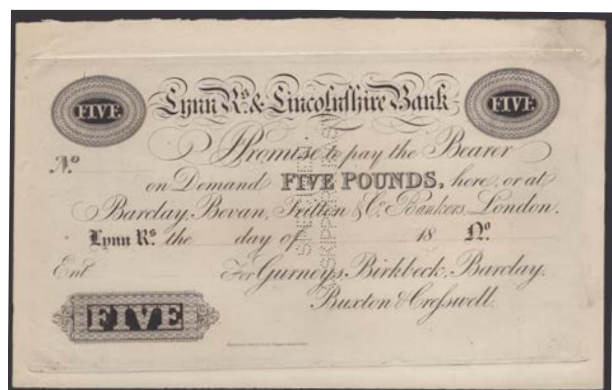 FIVE Lynn Rs. & Lincolnshire Bank FIVE
No. I Promise to pay the Bearer
on Demand FIVE POUNDS, here, or at
Barclay, Bevan, Tritton & Co. Bankers, London.
Lynn Rs. the day of 18 No.
Entd. For Gurneys, Birkbeck, Barclay,
Buxton & Cresswell.
FIVE
SPECIMEN